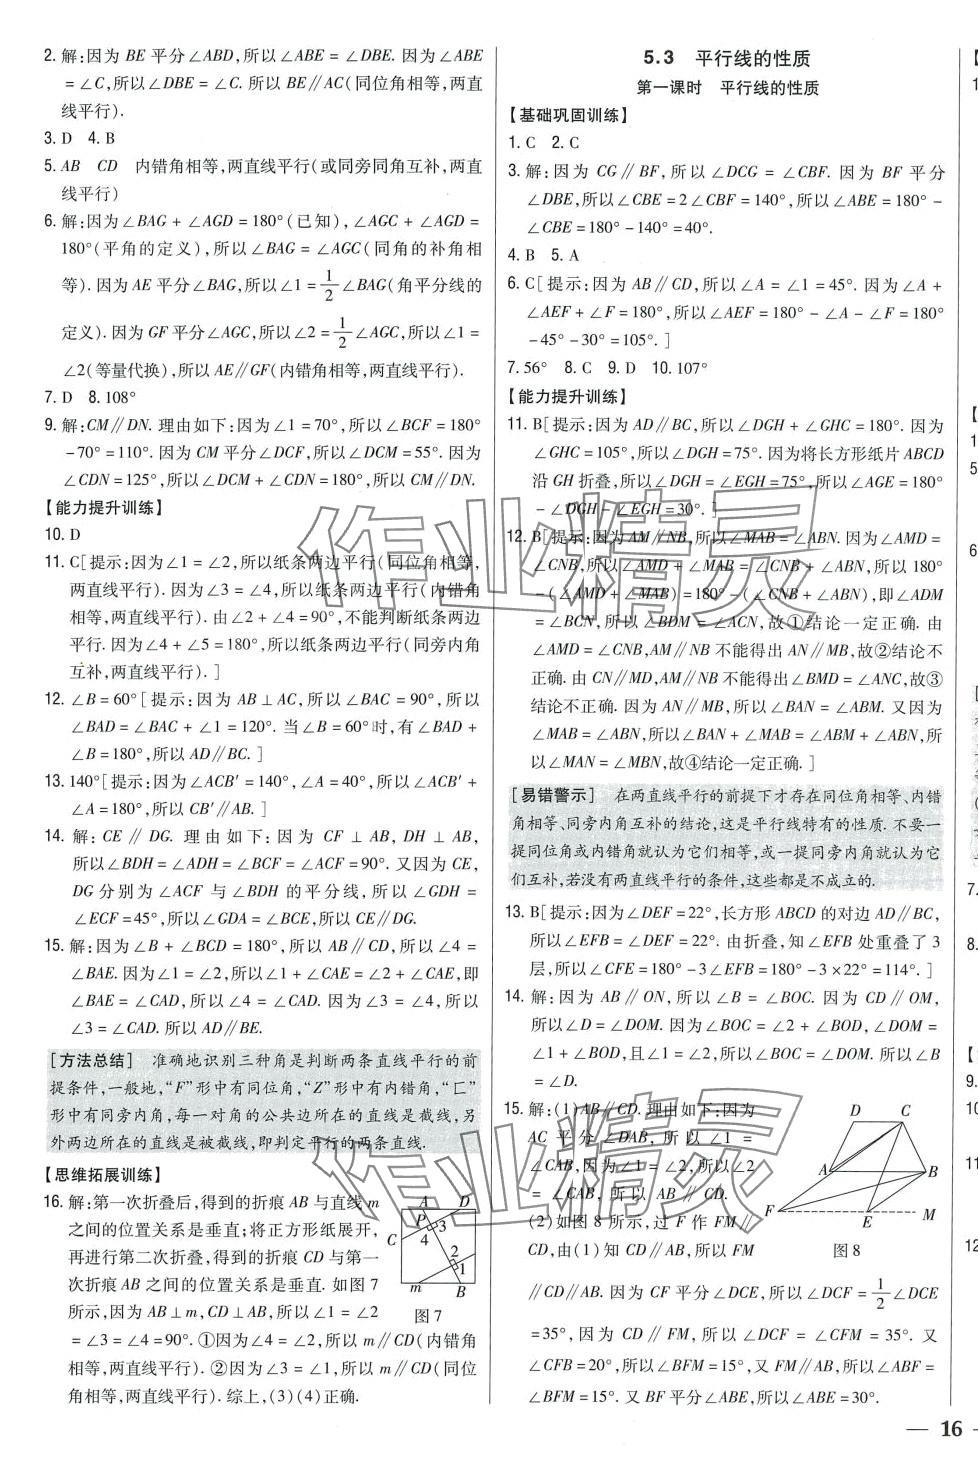 2. 解:因为 BE 平分∠ABD,所以∠ABE = ∠DBE. 因为∠ABE
= ∠C,所以∠DBE = ∠C. 所以 BE∥AC(同位角相等,两直
线平行).
3. D 4. B
5. AB CD 内错角相等,两直线平行(或同旁同角互补,两直
线平行)
6. 解:因为∠BAG + ∠AGD = 180°(已知),∠AGC + ∠AGD =
180°(平角的定义),所以∠BAG = ∠AGC(同角的补角相
等). 因为 AE 平分∠BAG,所以∠1 = 1/2∠BAG(角平分线的
定义). 因为 GF 平分∠AGC,所以∠2 = 1/2∠AGC,所以∠1 =
∠2(等量代换),所以 AE∥GF(内错角相等,两直线平行).
7. D 8. 108°
9. 解:CM∥DN. 理由如下:因为∠1 = 70°,所以∠BCF = 180°
-70° = 110°. 因为 CM 平分∠DCF,所以∠DCM = 55°. 因为
∠CDN = 125°,所以∠DCM + ∠CDN = 180°,所以 CM∥DN.
【能力提升训练】
10. D
11. C[提示:因为∠1 = ∠2,所以纸条两边平行(同位角相等,
两直线平行). 因为∠3 = ∠4,所以纸条两边平行(内错角
相等,两直线平行). 由∠2 + ∠4 = 90°,不能判断纸条两边
平行. 因为∠4 + ∠5 = 180°,所以纸条两边平行(同旁内角
互补,两直线平行). ]
12. ∠B = 60°[提示:因为 AB⊥AC,所以∠BAC = 90°,所以
∠BAD = ∠BAC + ∠1 = 120°. 当∠B = 60°时,有∠BAD +
∠B = 180°,所以 AD∥BC. ]
13. 140°[提示:因为∠ACB′ = 140°,∠A = 40°,所以∠ACB′ +
∠A = 180°,所以 CB′∥AB. ]
14. 解: CE∥DG. 理由如下:因为 CF⊥AB, DH⊥AB,
所以∠BDH = ∠ADH = ∠BCF = ∠ACF = 90°. 又因为 CE,
DG 分别为∠ACF 与∠BDH 的平分线,所以∠GDH =
∠ECF = 45°,所以∠GDA = ∠BCE,所以 CE∥DG.
15. 解:因为∠B + ∠BCD = 180°,所以 AB∥CD,所以∠4 =
∠BAE. 因为∠1 = ∠2,所以∠1 + ∠CAE = ∠2 + ∠CAE,即
∠BAE = ∠CAD,所以∠4 = ∠CAD. 因为∠3 = ∠4,所以
∠3 = ∠CAD. 所以 AD∥BE.
[方法总结] 准确地识别三种角是判断两条直线平行的前
提条件,一般地,“F”形中有同位角,“Z”形中有内错角,“匚”
形中有同旁内角,每一对角的公共边所在的直线是截线,另
外两边所在的直线是被截线,即判定平行的两条直线.
【思维拓展训练】
16. 解:第一次折叠后,得到的折痕 AB 与直线 m
之间的位置关系是垂直;将正方形纸展开,
再进行第二次折叠,得到的折痕 CD 与第一
次折痕 AB 之间的位置关系是垂直. 如图 7
所示,因为 AB⊥m,CD⊥AB,所以∠1 = ∠2
= ∠3 = ∠4 = 90°. ①因为∠4 = ∠2,所以 m∥CD(内错角
相等,两直线平行). ②因为∠3 = ∠1,所以 m∥CD(同位
角相等,两直线平行). 综上,(3)(4)正确.
A D
P 3
C 4
2
1
m B
图 7
5.3 平行线的性质
第一课时 平行线的性质
【基础巩固训练】
1. C 2. C
3. 解:因为 CG∥BF,所以∠DCG = ∠CBF. 因为 BF 平分
∠DBE,所以∠CBE = 2∠CBF = 140°,所以∠ABE = 180° -
∠CBE = 180° - 140° = 40°.
4. B 5. A
6. C[提示:因为 AB∥CD,所以∠A = ∠1 = 45°. 因为∠A +
∠AEF + ∠F = 180°,所以∠AEF = 180° - ∠A - ∠F = 180°
-45° - 30° = 105°. ]
7. 56° 8. C 9. D 10. 107°
【能力提升训练】
11. B[提示:因为 AD∥BC,所以∠DGH + ∠GHC = 180°. 因为
∠GHC = 105°,所以∠DGH = 75°. 因为将长方形纸片 ABCD
沿 GH 折叠,所以∠DGH = ∠EGH = 75°,所以∠AGE = 180°
- ∠DGH - ∠EGH = 30°. ]
12. B[提示:因为 AM∥NB,所以∠MAB = ∠ABN. 因为∠AMD =
∠CNB,所以∠AMD + ∠MAB = ∠CNB + ∠ABN,所以 180°
-(∠AMD + ∠MAB) = 180° -(∠CNB + ∠ABN),即∠ADM
= ∠BCN,所以∠BDM = ∠ACN,故①结论一定正确. 由
∠AMD = ∠CNB,AM∥NB 不能得出 AN∥BM,故②结论不
正确. 由 CN∥MD,AM∥NB 不能得出∠BMD = ∠ANC,故③
结论不正确. 因为 AN∥MB,所以∠BAN = ∠ABM. 又因为
∠MAB = ∠ABN,所以∠BAN + ∠MAB = ∠ABM + ∠ABN,所
以∠MAN = ∠MBN,故④结论一定正确. ]
[易错警示] 在两直线平行的前提下才存在同位角相等、内错
角相等、同旁内角互补的结论,这是平行线特有的性质. 不要一
提同位角或内错角就认为它们相等,或一提同旁内角就认为它
们互补,若没有两直线平行的条件,这些都是不成立的.
13. B[提示:因为∠DEF = 22°,长方形 ABCD 的对边 AD∥BC,
所以∠EFB = ∠DEF = 22°. 由折叠,知∠EFB 处重叠了 3
层,所以∠CFE = 180° - 3∠EFB = 180° - 3×22° = 114°. ]
14. 解:因为 AB∥ON,所以∠B = ∠BOC. 因为 CD∥OM,
所以∠D = ∠DOM. 因为∠BOC = ∠2 + ∠BOD,∠DOM =
∠1 + ∠BOD,且∠1 = ∠2,所以∠BOC = ∠DOM. 所以∠B
= ∠D.
15. 解:(1)AB∥CD. 理由如下:因为
AC 平分∠DAB,所以∠1 =
∠CAB. 因为∠1 = ∠2,所以∠2
= ∠CAB,所以 AB∥CD.
(2)如图 8 所示,过 F 作 FM∥
CD,由(1)知 CD∥AB,所以 FM
∥CD∥AB. 因为 CF 平分∠DCE,所以∠DCF = 1/2∠DCE
= 35°,因为 CD∥FM,所以∠DCF = ∠CFM = 35°. 又
∠CFB = 20°,所以∠BFM = 15°,又 FM∥AB,所以∠ABF =
∠BFM = 15°. 又 BF 平分∠ABE,所以∠ABE = 30°.
D C
A B
F E M
图 8
16
作业精灵
作业精灵